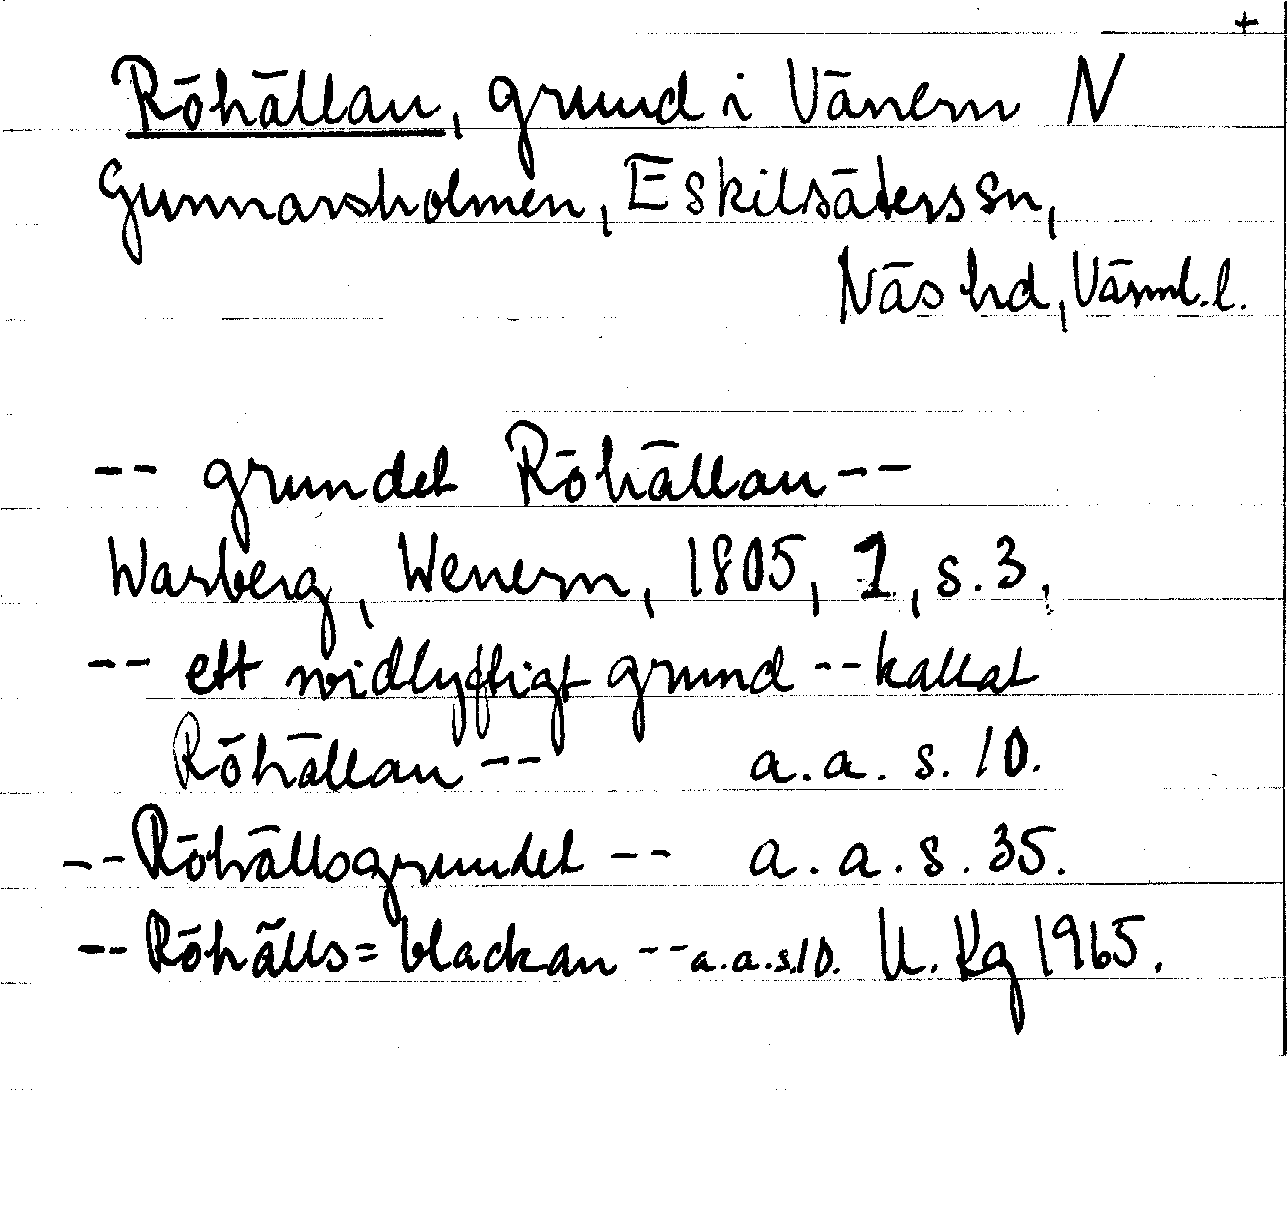 +
Röhällan, grund i Vänern N
Gunnarsholmen, Eskilsäters sn,
Näs hd, Värml. l.
-- grundet Röhällan --
Warberg, Wenern, 1805, 1, s. 3.
-- ett widlyftigt grund -- kallat
Röhällan -- a. a. s. 10.
-- Röhällsgrundet -- a. a. s. 35.
-- Röhälls=blackan -- a. a. s. 10. U. Kg 1965.